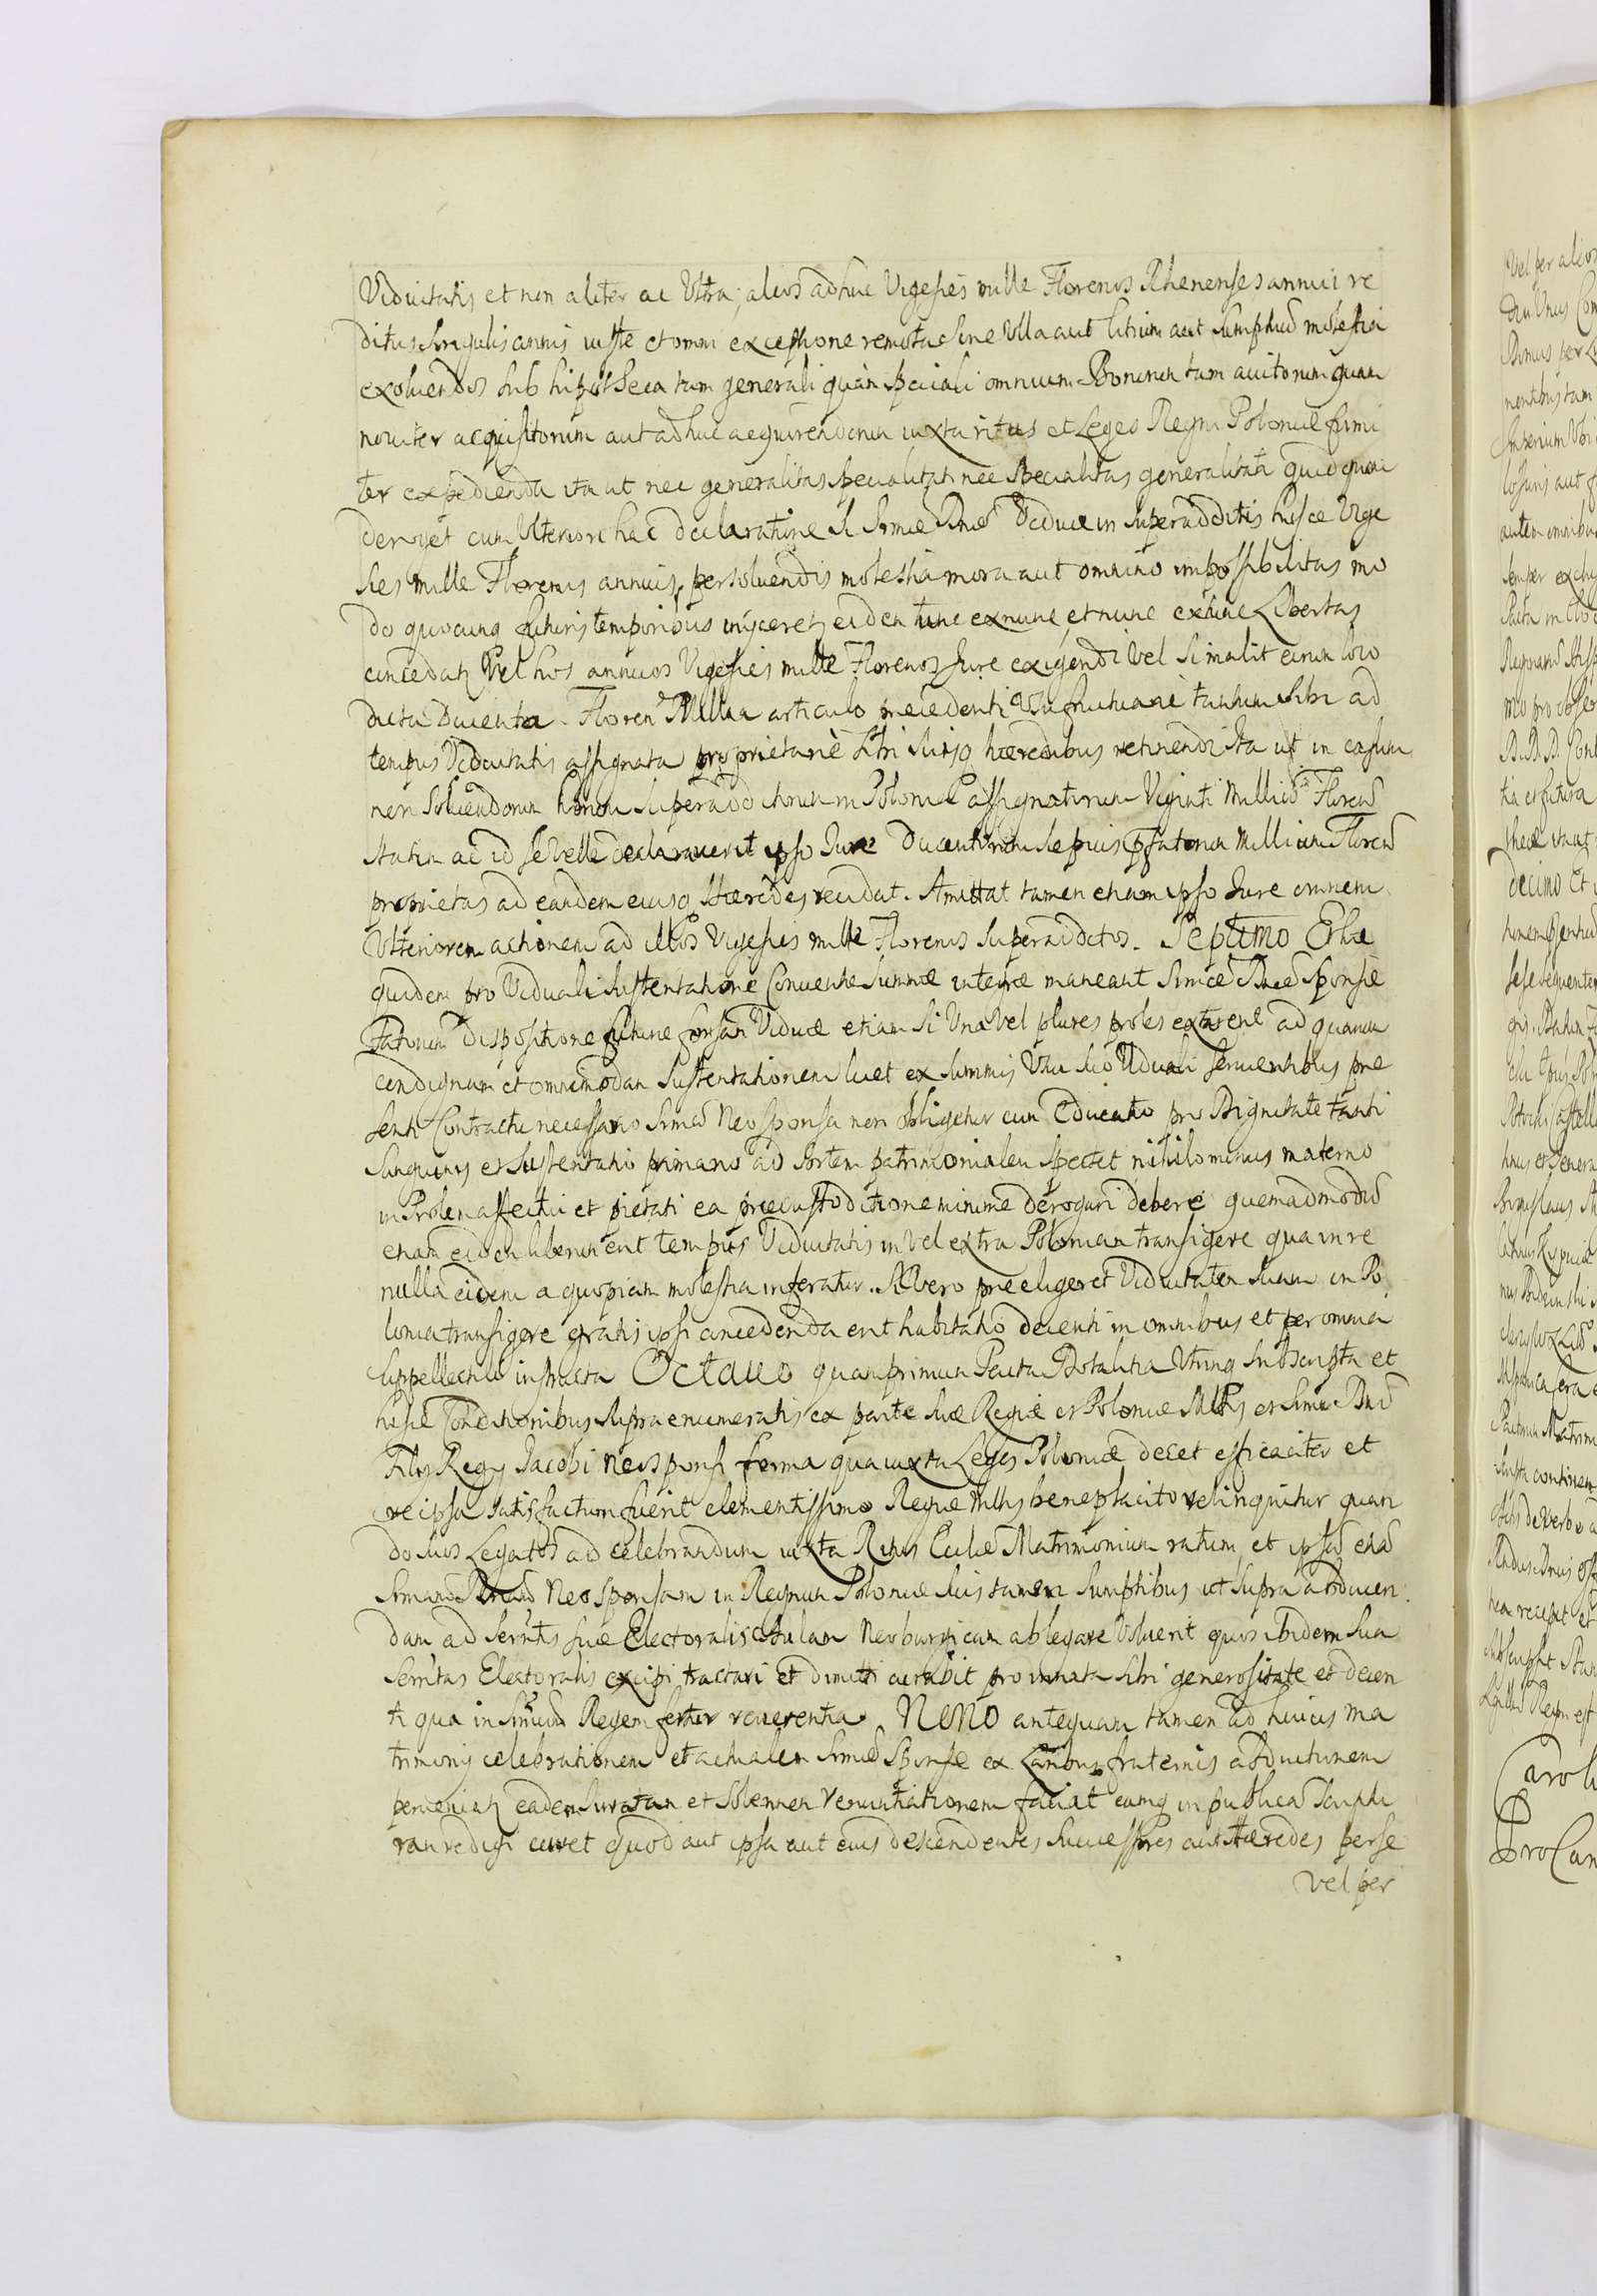 Viduitatis et non aliter ac Ultra, alios adhuc Vigesies mille Florenos Rhenenses annui re
ditus singulis annis iuste et omni exceptione remota sine Ulla aut litium aut sumptuũ molestia
exolvendos sub hipotheca tam generali quàm speciali omnium Bonorum tam avitorum quam
noviter acquisitorum aut adhuc acquirendorum iuxta ritus et Leges Regni Poloniæ firmi
ter expedienda ita ut nec generalitas specialitati nec specialitas generalitati quidquam
deroget cum Ulteriori hac declaratione si Srmæ Dnæ Viduæ in superadditis hisce Vige
sies mille Florenis annuis persolvendis molestia mora aut omnino impossibilitas mo
do quocunq futuris temporibus inijceretz eidem tunc ex nunc, et nunc ex tunc Libertas
concedatz Vel hos annuos Vigesies mille Florenos Jure exigendi Vel si malit eorum loco
dicta Ducenta Floren Millia articulo præcedenti Usufructuariè tantum sibi ad
tempus Viduitatis assignata proprietariè sibi suisq hæredibus retinendi Ita ut in casum
non solvendorum horum superadditorum in Polonia assignatorum Viginti Milliũ Florenũ
statim ac id se velle declaraverit ipso Jure Ducentorum sæpius pfatorum Millium Florenũ
proprietas ad eandem eiusq Hæredes recidat. Amittat tamen etiam ipso Jure omnem
Ulteriorem actionem ad illos Vigesies mille Florenos superaddictos. Septimo Et hæ
quidem pro Viduali sustentatione Conventæ summæ integræ maneant Srmæ Dnæ Sponsæ
Fatorum dispositione futuræ forsan Viduæ etiam si Una Vel plures proles extarent ad quarum
condignam et omnimodam sustentationem licet ex summis Usui suo Viduali servientibus præ
senti Contractu necessario Srma Neosponsa non obligetur cum Educatio pro Dignitate tanti
Sanguinis et sustentatio primario ad sortem patrimonialem spectet nihilominus materno
in Prolem affectui et pietati ea præcustoditione minime derogari debere quemadmodũ
etiam eidem liberum erit tempus Viduitatis in Vel extra Poloniam transigere qua in re
nulla eidem a quopiam molestia inferatur. Si Vero præeligeret Viduitatem suam in Po
lonia transigere gratis ipsi concedenda erit habitatio decenti in omnibus et per omnia
suppellectili instructa Octavo quamprimum Pacta Dotalitia Utrinq subscripta et
hisce Conditionibus supra enumeratis ex parte suæ Regiæ et Poloniæ Mttis et Srmi Dni
Filij Regij Jacobi Neosponsi forma qua iuxta Leges Poloniæ decet efficaciter et
re ipsa satisfactum fuerit clementissimo Regiæ Mttis beneplacito relinquitur quan
do suos Legatos ad celebrandum iuxta Ritus Eccliæ Matrimonium ratum, et ipsã etiã
Srmam Dnam Neosponsam in Regnum Poloniæ suis tamen sumptibus ut supra adducen
dam ad Serrtis suæ Electoralis Aulam Neoburgicam ablegare Voluerit quos ibidem sua
Serrtas Electoralis excipi tractari et dimitti curabit pro innata sibi generositate et decen
ti qua in Srmum Regem fertur reverentia. Nono antequam tamen ad huius ma
trimonij celebrationem et actualem Srmæ Sponsæ ex Laribus fraternis abductionem
perveniatz eadem Juratam et solennem renuntiationem faciat eamq in publicã scriptu
ram redigi curet quod aut ipsa aut eius descendentes successores aut Hæredes per se
Vel per